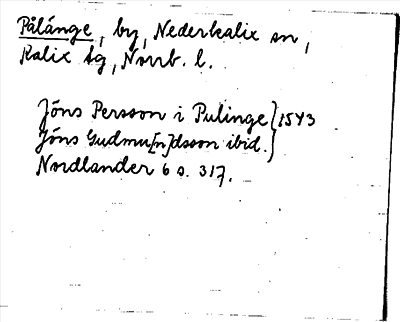 Pålänge, by, Nederkalix sn,
Kalix tg, Norrb. l.
Jöns Persson i Pulinge } 1543
Jöns Gudmu[n]dsson ibid. }
Nordlander 6 s. 317.